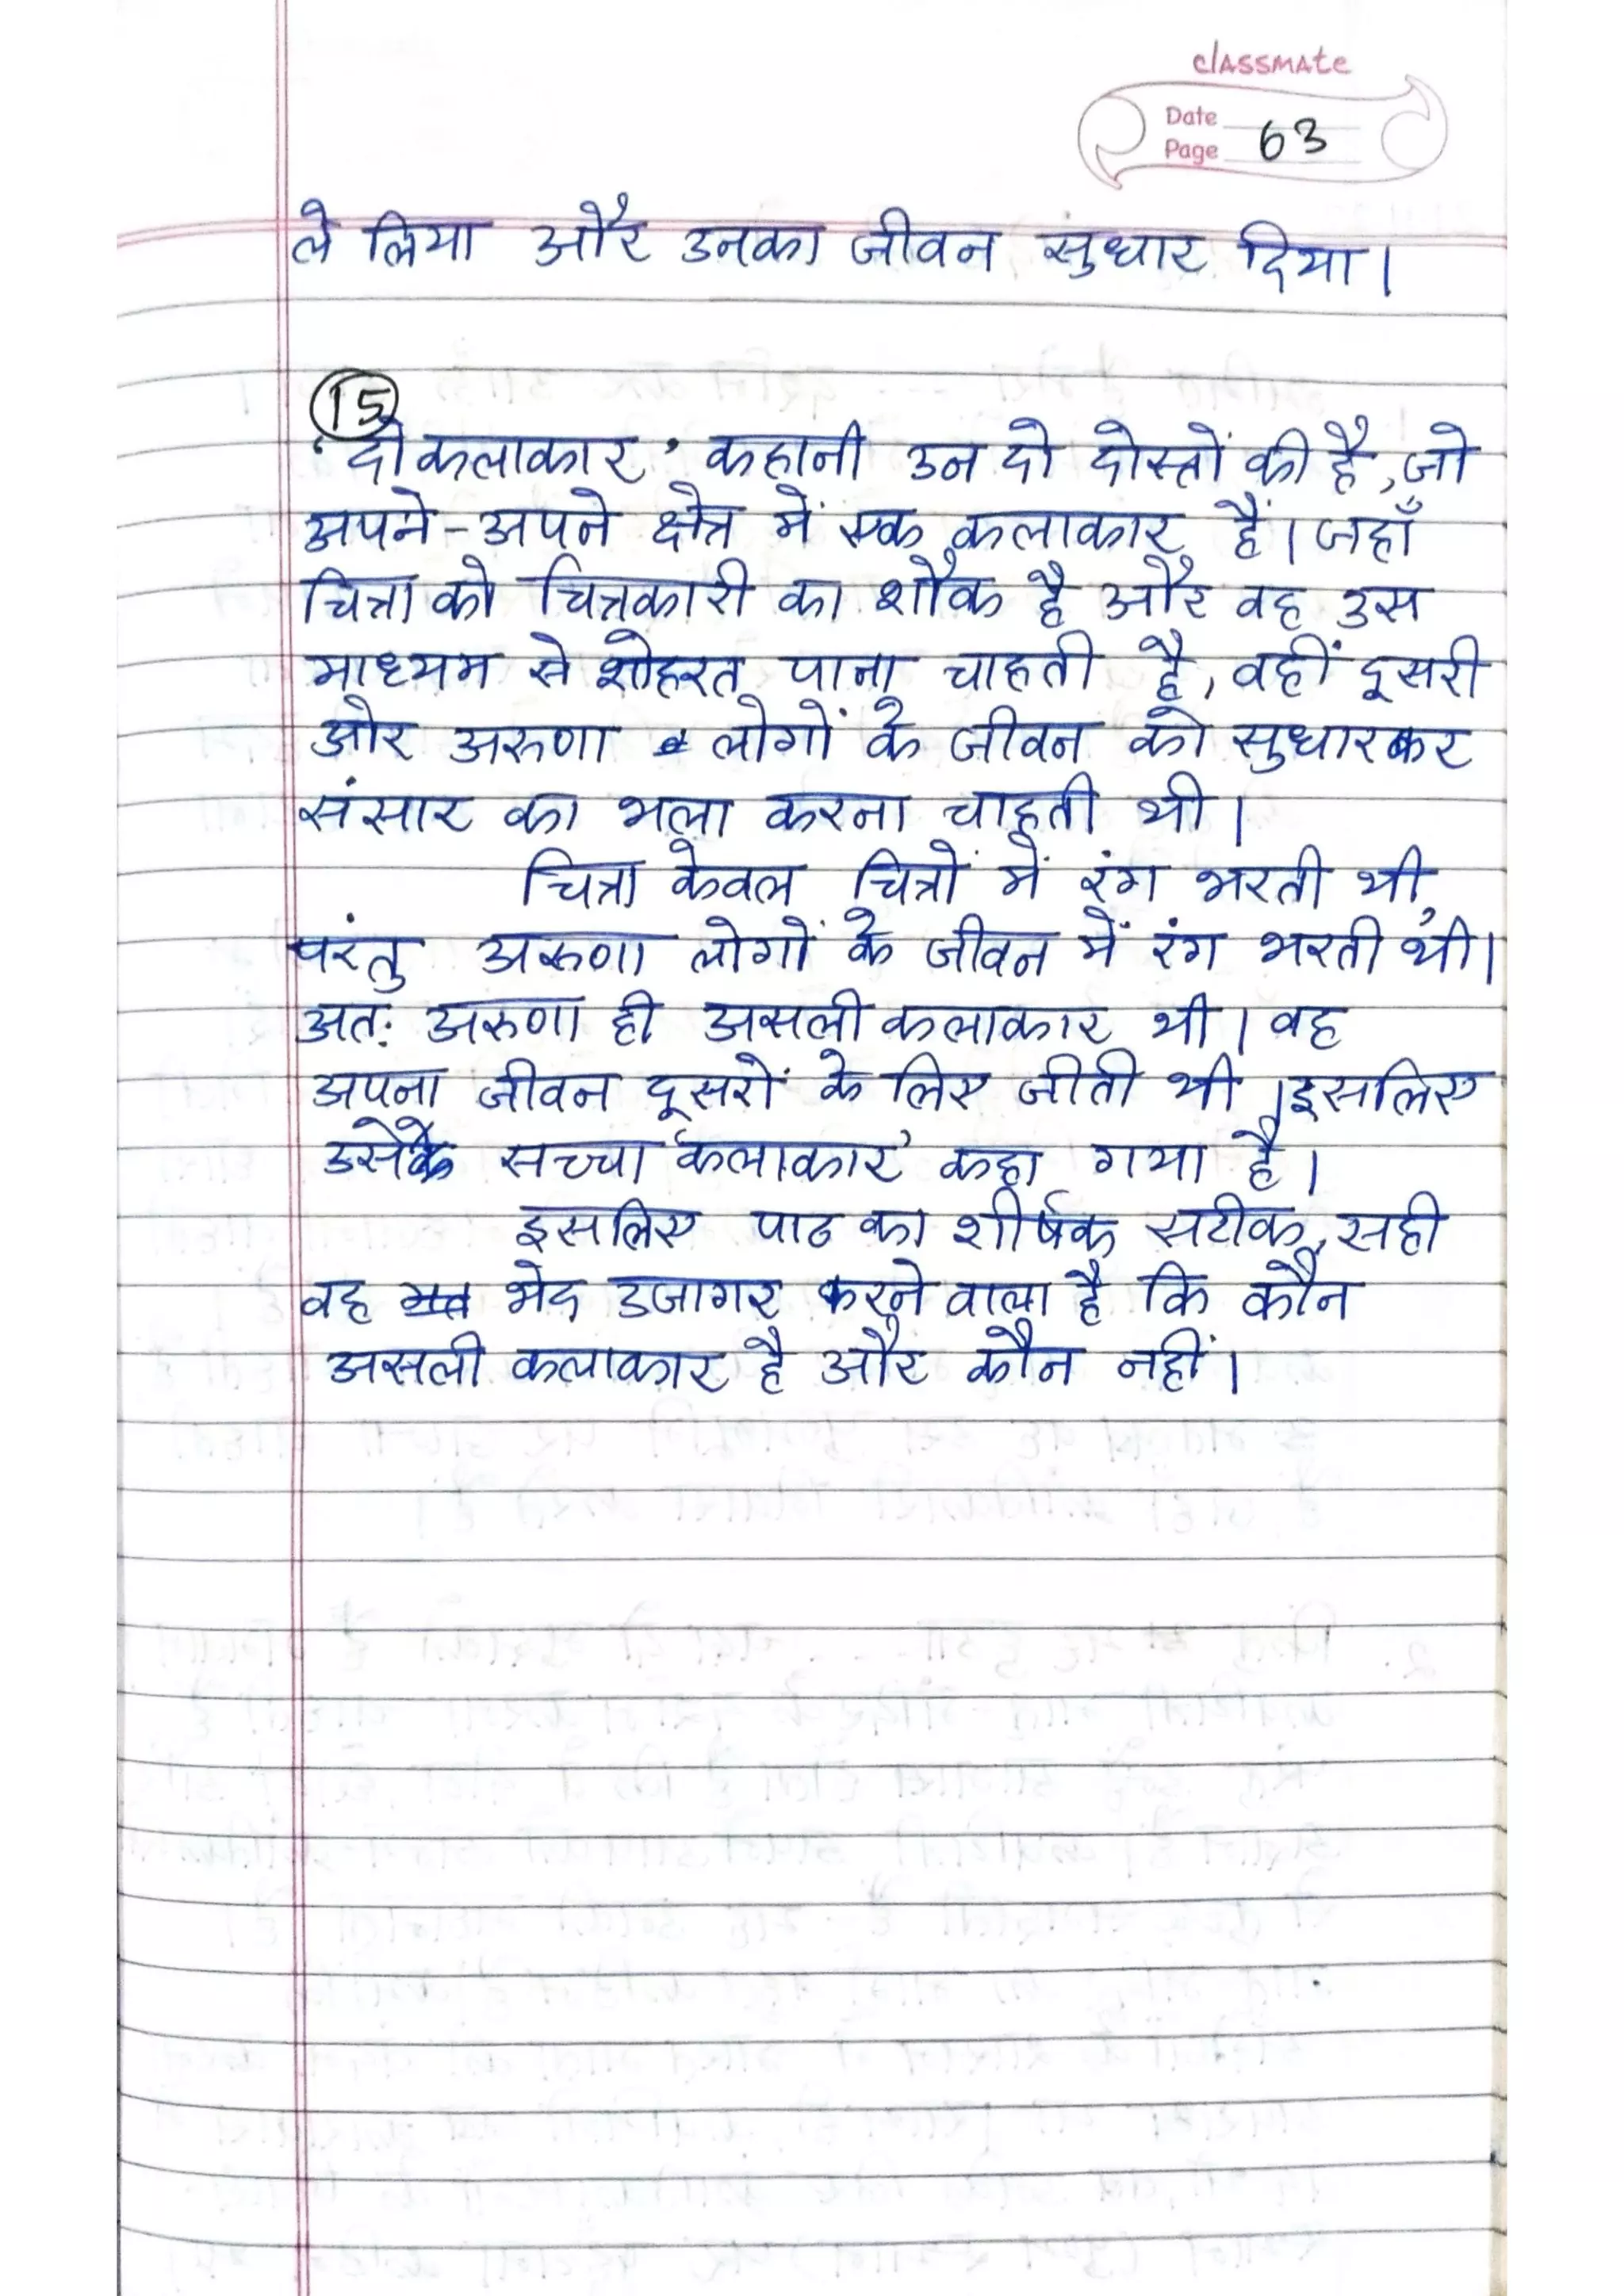 classmate
Date
Page 63
ले लिया और उनका जीवन सुंधार दिया।
15
'दो कलाकार' कहानी उन दो दोस्तों की है, जो
अपने-अपने क्षेत्र में एक कलाकार हैं। जहाँ
चित्रा को चित्रकारी का शौक है और वह उस
माध्यम से शोहरत पाना चाहती है, वहीं दूसरी
ओर अरुणा लोगों के जीवन को सुधारकर
संसार का भला करना चाहती थी।
चित्रा केवल चित्रों में रंग भरती थी,
परंतु अरुणा लोगों के जीवन में रंग भरती थी।
अतः अरुणा ही असली कलाकार थी। वह
अपना जीवन दूसरों के लिए जीती थी। इसलिए
उसे सच्चा 'कलाकार' कहा गया है।
इसलिए पाठ का शीर्षक सटीक, सही
वह भेद उजागर करने वाला है कि कौन
असली कलाकार है और कौन नहीं।